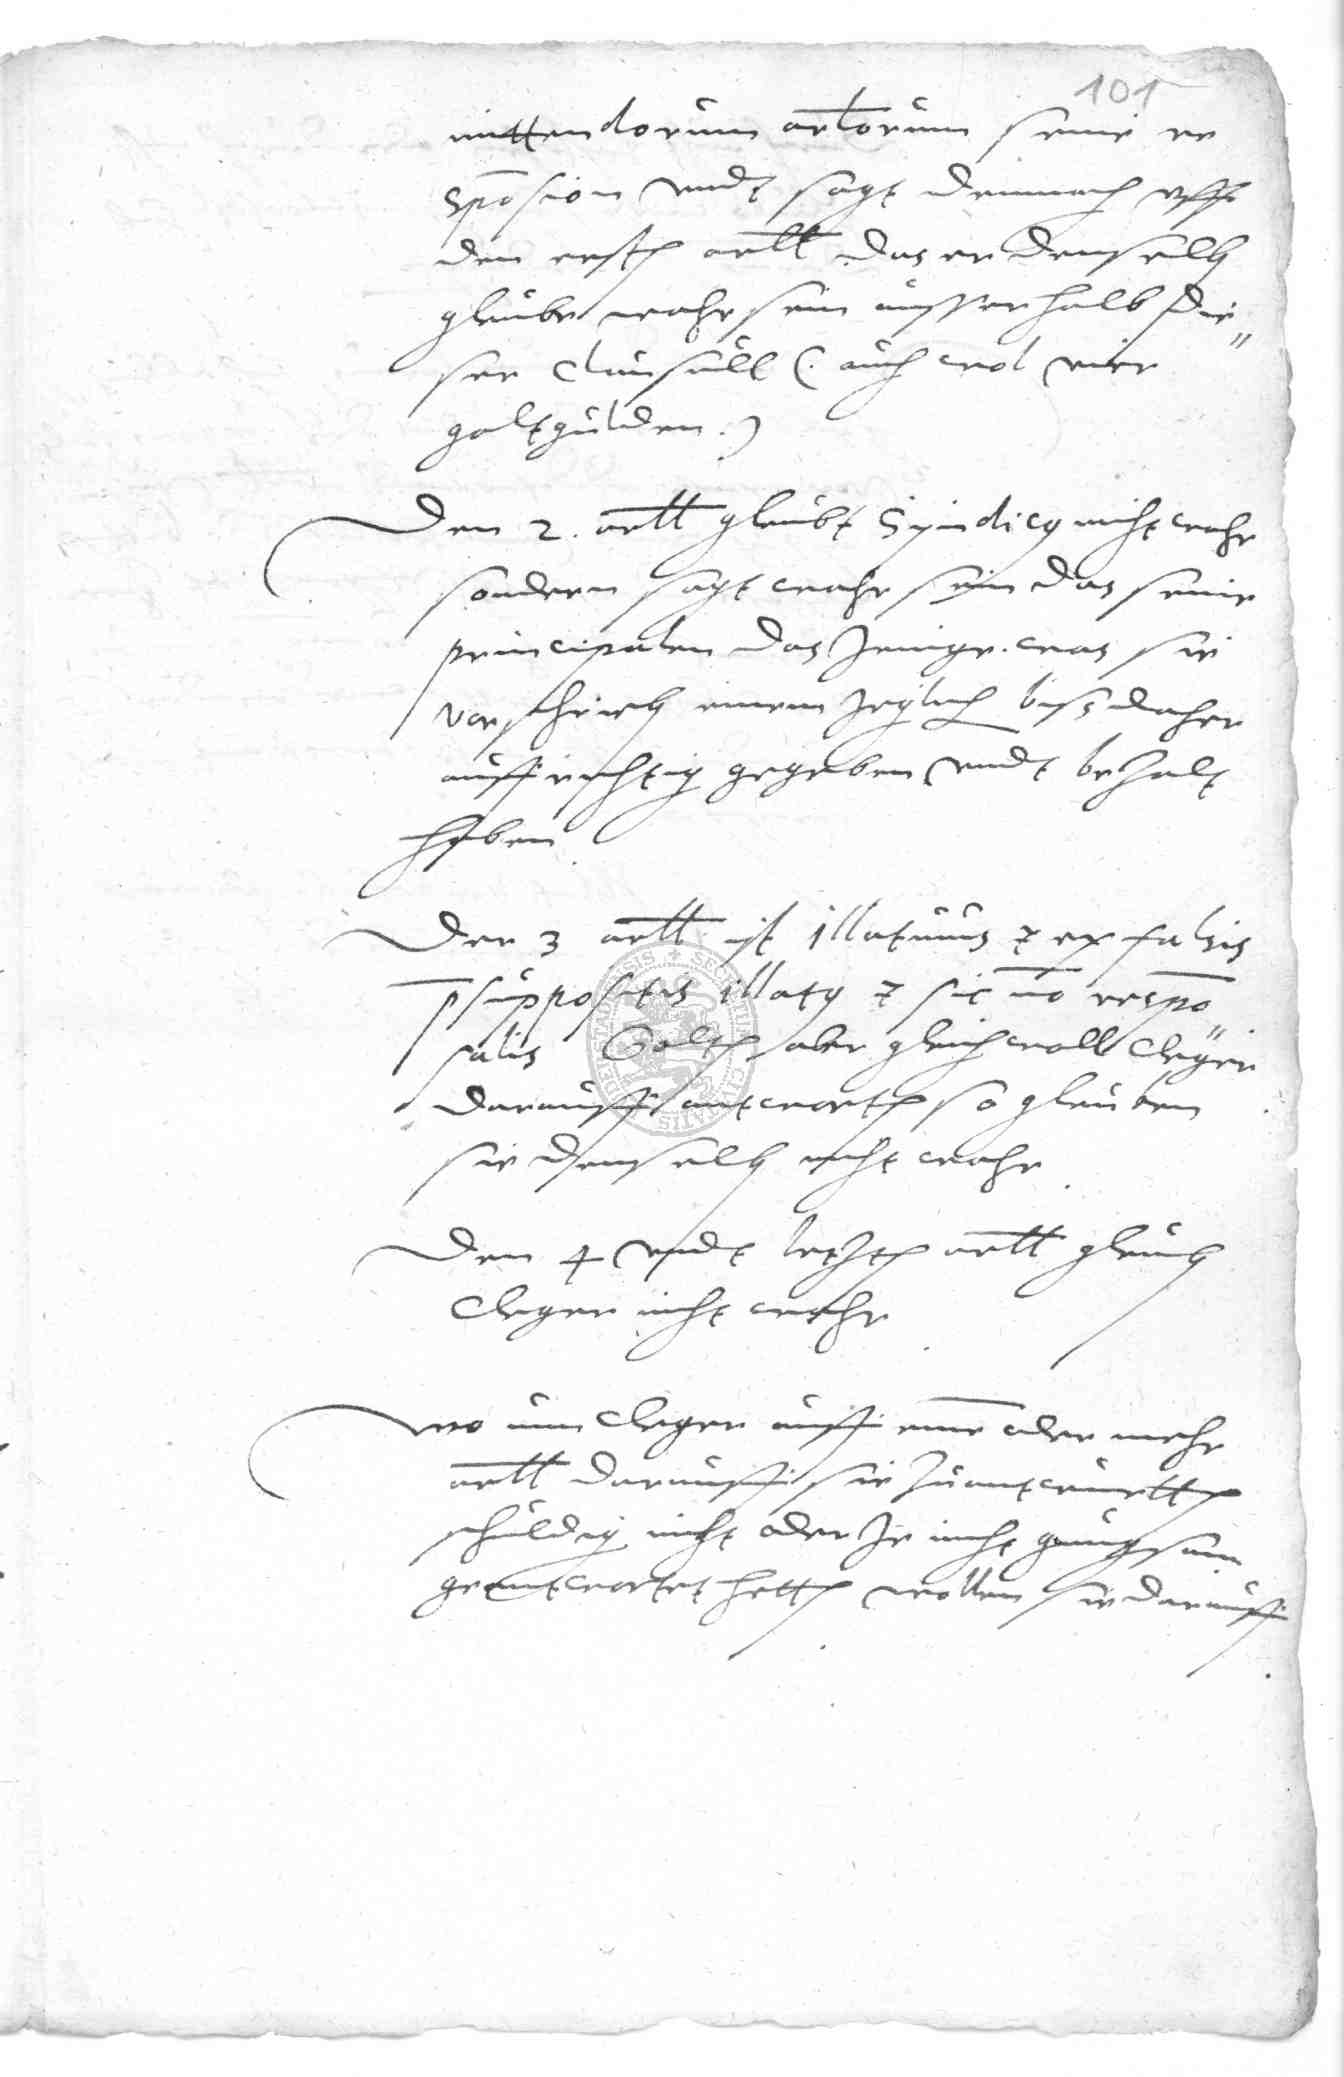 101
mittendorum artlorum seine re
sposion vndt sagt demnach vff
den ersten artll das er denselben
gleube wahr sein ausserhalb die"
ser clausull (. auch wol vier
goltgulden .)
Den 2. artll gleubt Syndicus nicht wahr
sondern sagt wahr sein das seine
principalen das Jenige was sie
vorschrieben einem Jeglich biss daher
auffrichtig gegeben vndt bezalt
haben
Der 3 artll ist illatiuus et ex falsis
psuppositis illatus et sic no respo"
salis Solten aber gleich woll Cleger
darauff antworten so gleuben
sie denselben nicht wahr
Den 4 vndt letzten artll gleuben
Cleger nicht wahr
Wo nun Cleger auff eine oder mehr
artll darauff sie zuantwurtten
schuldig nicht oder Je nicht gnugsam
geantwortet hetten wollen sie darauff
SECRETUM CIVITATIS